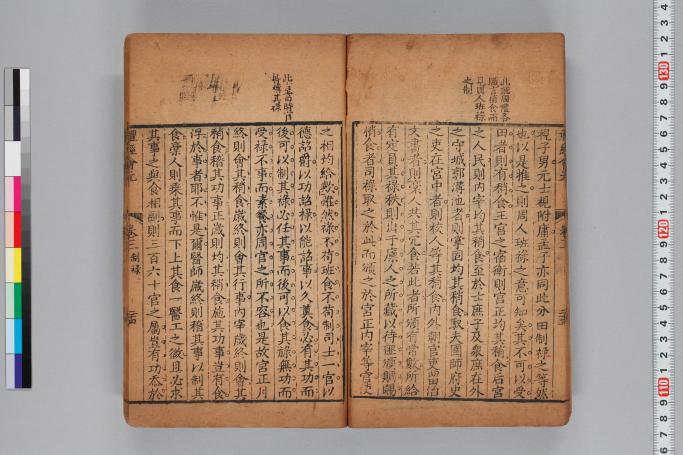 視子男元士視附庸孟子亦同此分田制祿之等然
也以是推之則周人班祿之意可知矣其不可以受
田者則有稍食王宮之宿衛則宮正均其稍食后宮
之人民則內宰均其稍食至於士庶子及衆庶在外
之守城郭溝池者則掌固均其稍食取夫圉師府史
之吏在宮中者則校人等其稍食內外朝官吏當治
文書者則槀人共其宂食若此者所頒有常數所給
有定員其祿秩則出于廩人之所藏以待匪頒賙賜
稍食者司祿取之於此而頒之於宮正內宰等官
之相均給歟雖然祿不苟班食不苟制司士一官以
德詔爵以功詔祿以能詔事以久奠食必有其功而
後可以制其祿必任其事而後可以食其祿無功而
受祿不事而素餐亦周官之所不容也是故宮正月
終則會其稍食歲終則會其行事內宰歲終則會其
稍食稽其功事正歲則均其稍食施其功事豈有食
浮於事者耶不惟是爾醫師歲終則稽其事以制其
食槀人則乘其事而下上其食一醫工之微且必求
其事之與食相副則三百六十官之屬豈有功忝於
禮經會元
卷二
制祿